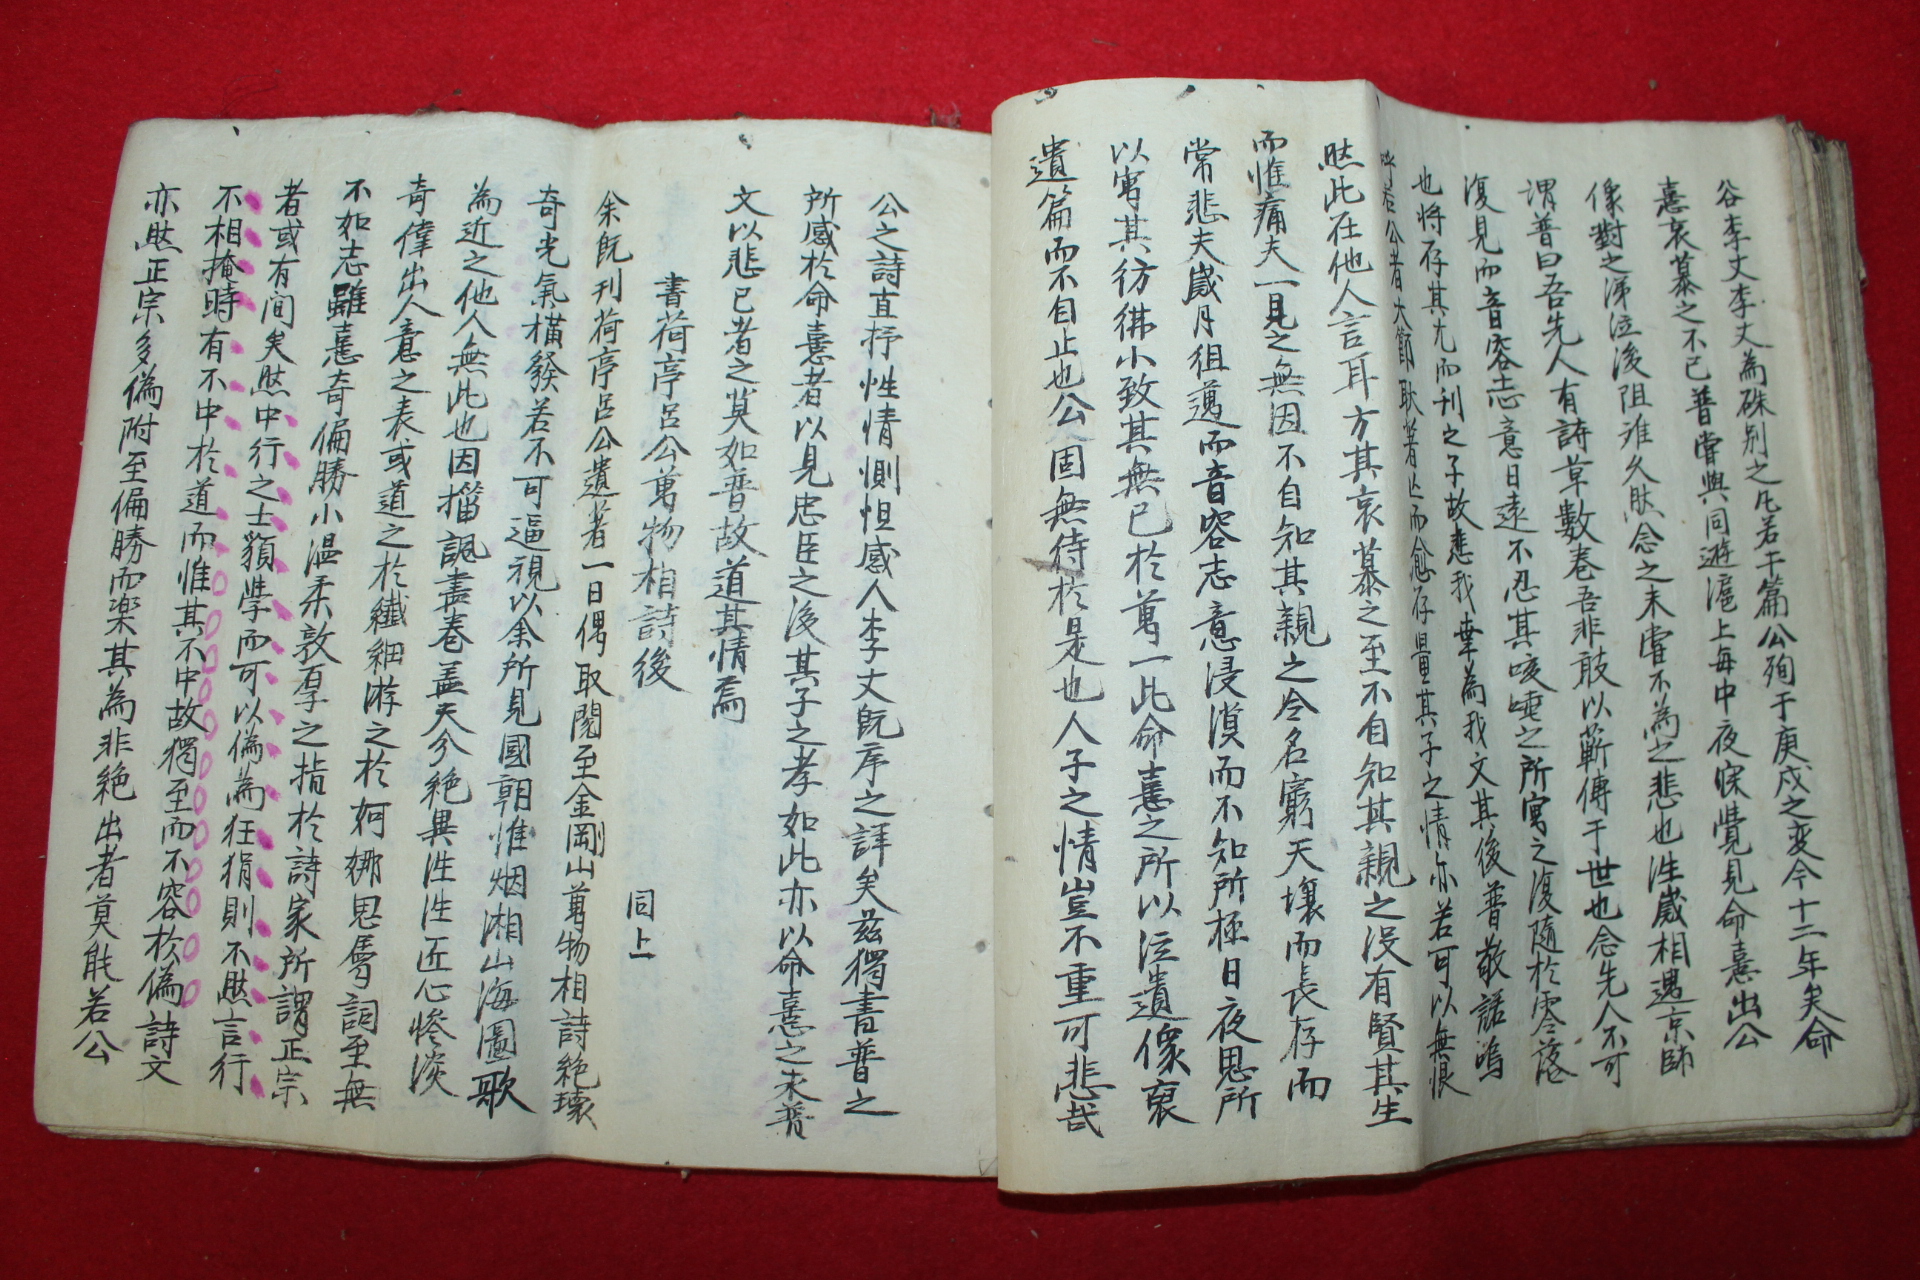 谷李丈李丈為硃別之凡若干篇公殉于庚戌之変今十二年矣命
憙哀慕之不已普嘗與同遊滬上每中夜寐覺見命憙出公
像對之涕泣後阻難久然念之未嘗不為之悲也往歲相遇京師
謂普曰吾先人有詩草數卷吾非敢以蘄傳于世也念先人不可
復見而音容志意日遠不忍其咳唾之所寓之復隨於零落
也將存其尤而刊之子故悲我幸為我文其後普敬諾嗚
呼若公者大節耿著丛而愈存量其子之情亦若可以無恨
然此在他人言耳方其哀慕之至不自知其親之沒有賢其生
而惟痛夫一見之無因不自知其親之令名窮天壤而長存而
常悲夫歲月徂邁而音容志意浸漠而不知所極日夜思所
以寓其彷彿小致其無已於萬一此命憙之所以泣遺像裒
遺篇而不自止也公固無待於是也人子之情豈不重可悲哉
公之詩直抒性情惻怛感人李丈旣序之詳矣茲獨書普之
所感於命憙者以見忠臣之後其子之孝如此亦以命憙之未普
文以悲已者之莫如普故道其情焉
書荷亭呂公萬物相詩後 同上
余旣刊荷亭呂公遺著一日偶取閱至金剛山萬物相詩絶瓌
奇光氣橫發若不可逼視以余所見國朝惟烟湘山海圖歌
為近之他人無此也因擂諷盡卷盖天分絶異往往匠心慘淡
奇偉出人意之表或道之於纖細游之於婀娜思骞詞至無
不如志雖憙奇偏勝小温柔敦厚之指於詩家所謂正宗
者或有間矣然中行之士類學而可以偽為狂狷則不然言行
不相掩時有不中於道而惟其不中故獨至而不容於偽詩文
亦然正宗多偽附至偏勝而楽其為非絶出者莫能若公